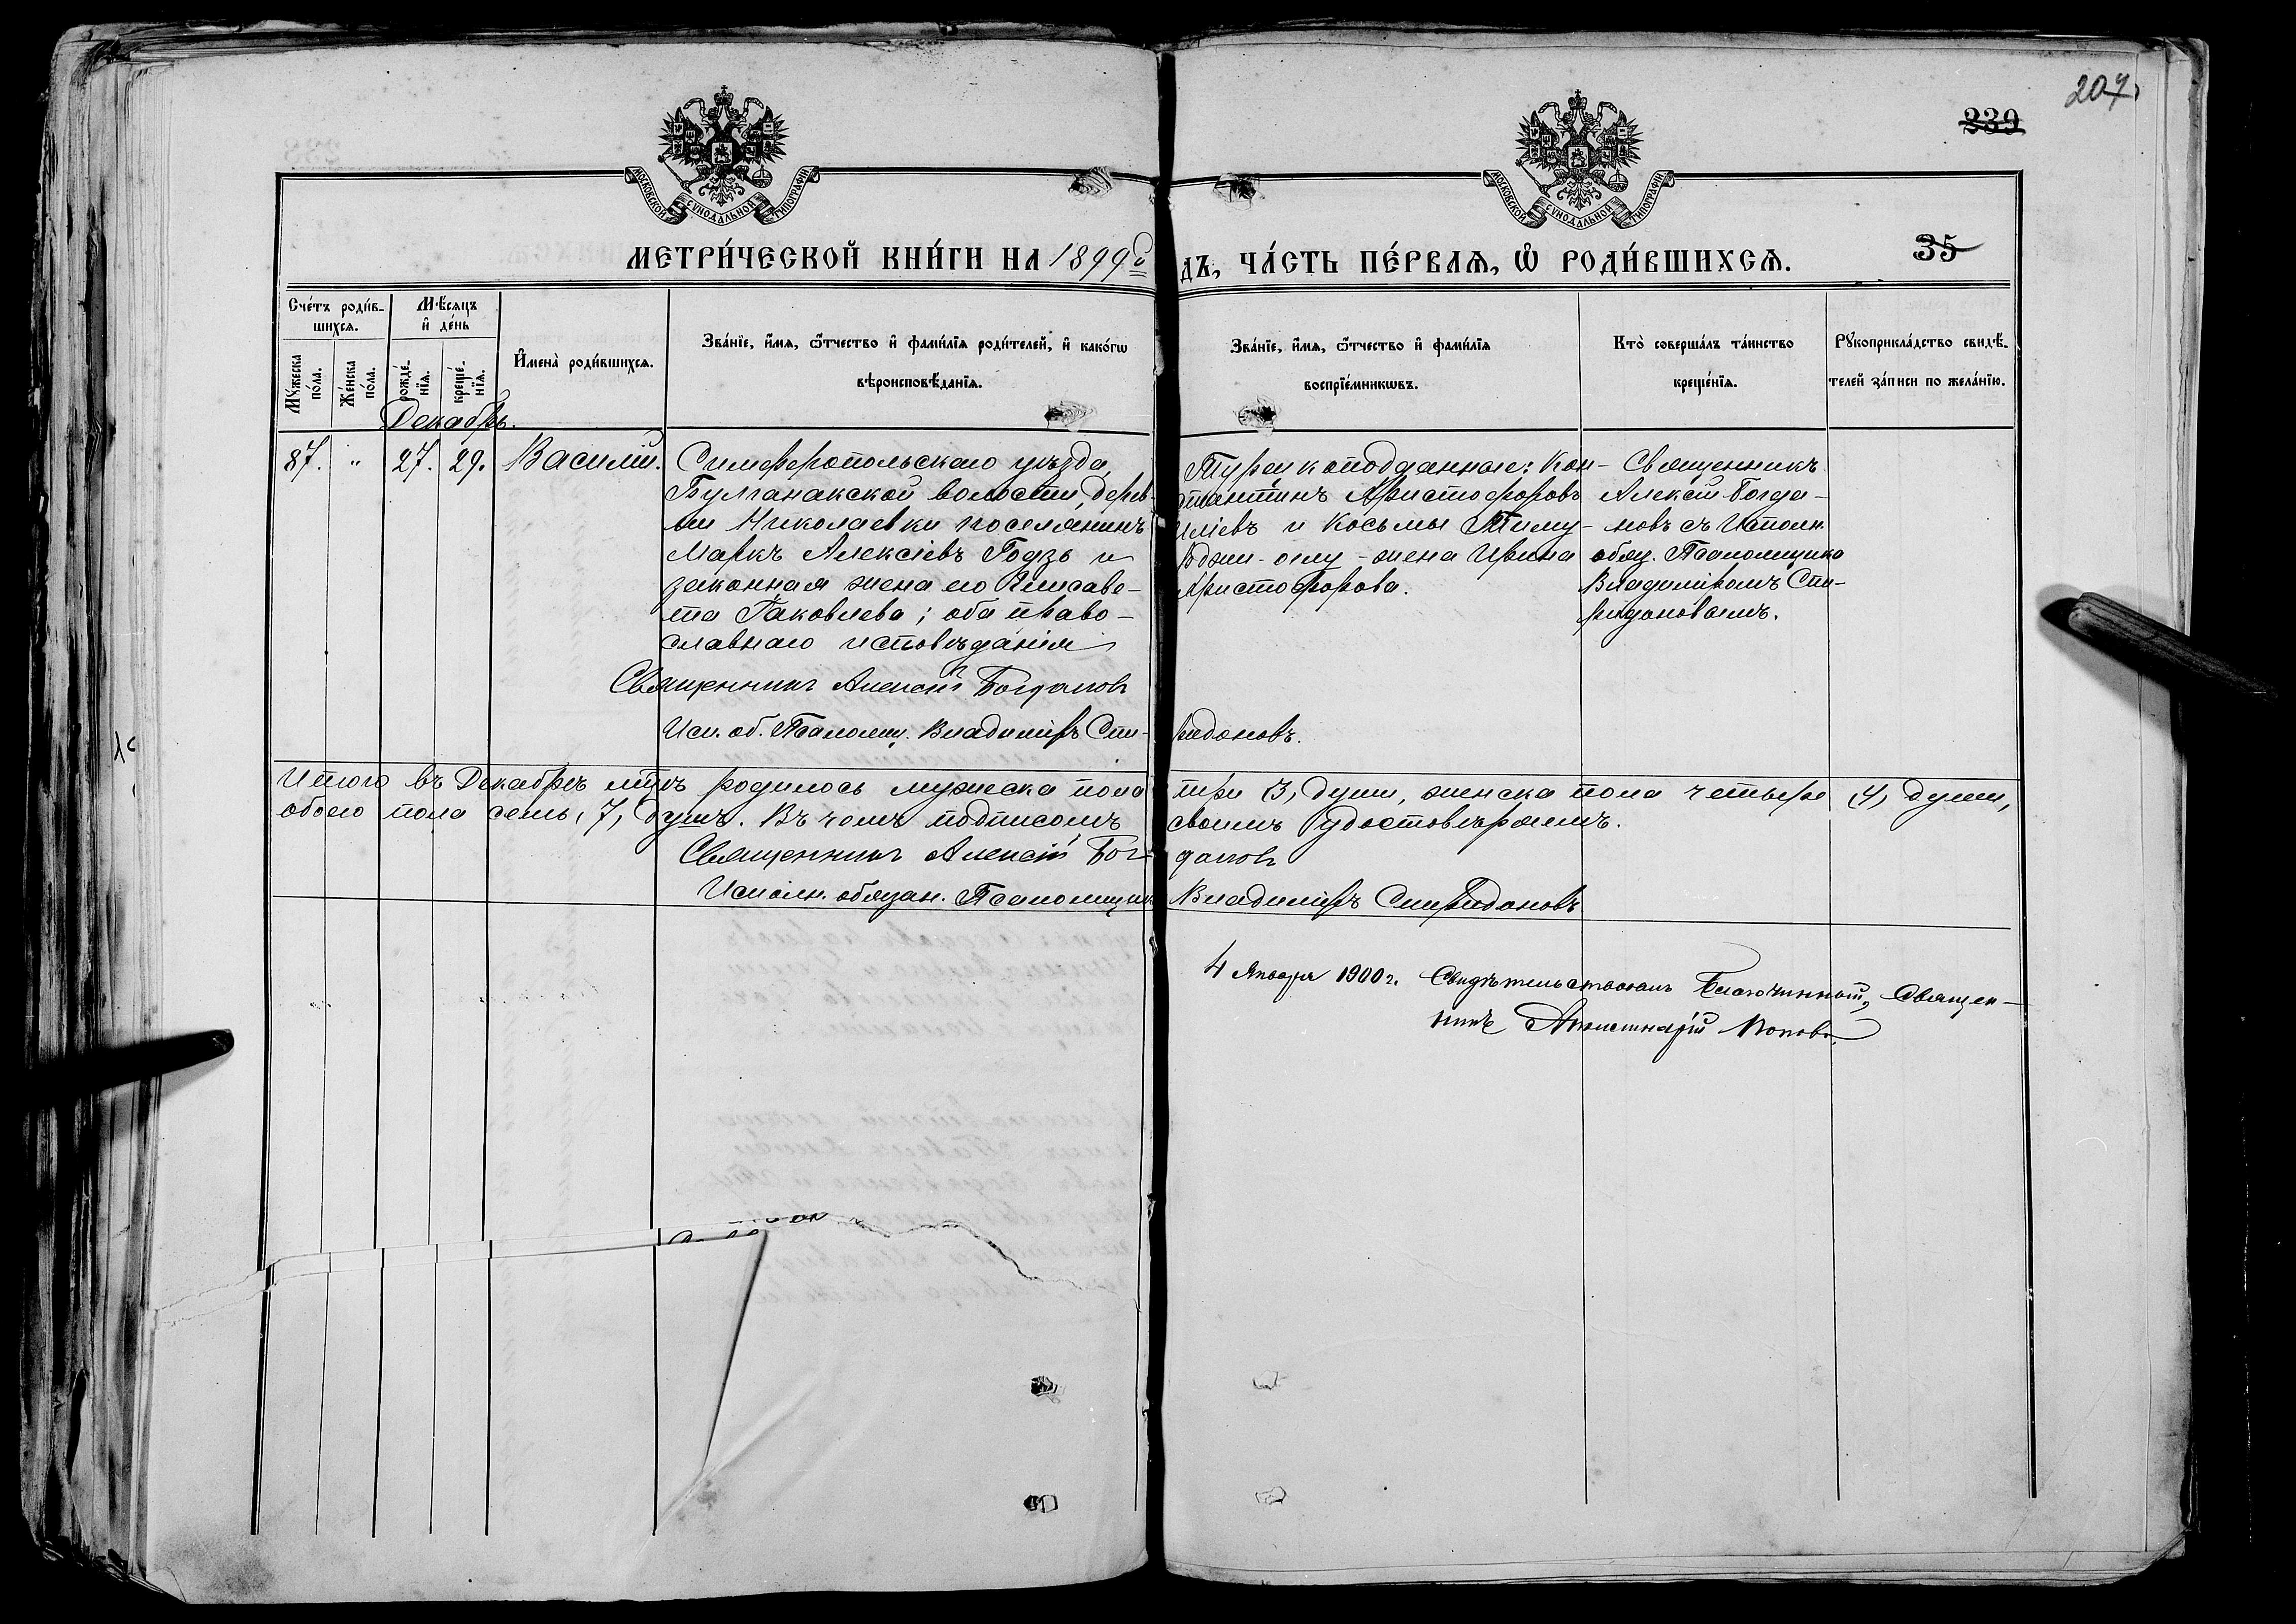 207
339
МОСКОВСКОЙ СѴНОДАЛЬНОЙ ТИПОГРАФІИ
МОСКОВСКОЙ СѴНОДАЛЬНОЙ ТИПОГРАФІИ
МЕТРИ́ЧЕСКОЙ КНИ́ГИ НА 1899 й
ДЪ, ЧА́СТЬ ПЕ́РВАЯ, Ѡ҆ РОДИ́ВШИХСЯ.
35
Сче́тъ роди́в-
шихся.
Мꙋ́жеска по́ла.
Же́нска по́ла.
Мѣ́сяцъ
и҆ де́нь
рожде́нїя.
креще́нїя.
И҆мена̀ роди́вшихся.
Зва́нїе, и҆́мя, ѻ҆́тчество и҆ фами́лїя роди́телей, и҆ како́гѡ
вѣроисповѣ́данїя.
Зва́нїе, и҆́мя, ѻ҆́тчество и҆ фами́лїя
воспрїе́мникѡвъ.
Кто̀ соверша́лъ та́инство
креще́нїя.
Рꙋкоприкла́дство свидѣ́-
телей за́писи по жела́нїю.
Декабрь.
87. " 27. 29. Василій.
Симферопольскаго уѣзда,
Булганакской волости, дерев-
ни Николаевки поселянинъ
Маркъ Алексіевъ Годзь и
законная жена его Елисаве-
та Іаковлева; оба право-
славнаго исповѣданія
Турецкоподданные: Кон-
стантинъ Аристофоровъ
Иліевъ и Косьмы
жена Ирина
Аристофорова.
Священникъ
Алексій Богда-
новъ съ Исполн.
обяз. Псаломщика
Владиміромъ Спи-
ридоновымъ.
Священникъ Алексій Богдановъ
Исп. об. Псаломщ. Владиміръ Спи-
ридоновъ.
Итого въ Декабрѣ мцѣ родилось мужеска пола три (3) души, женска пола четыре (4) души,
обоего пола семь (7) душъ. Въ чемъ подписомъ своимъ удостовѣряемъ.
Священникъ Алексій Богдановъ
Исполн. обязан. Псаломщика Владиміръ Спиридоновъ
4 Января 1900 г. Свидѣтельствовалъ Благочинный, Священ-
никъ Аполлинарій Поповъ.